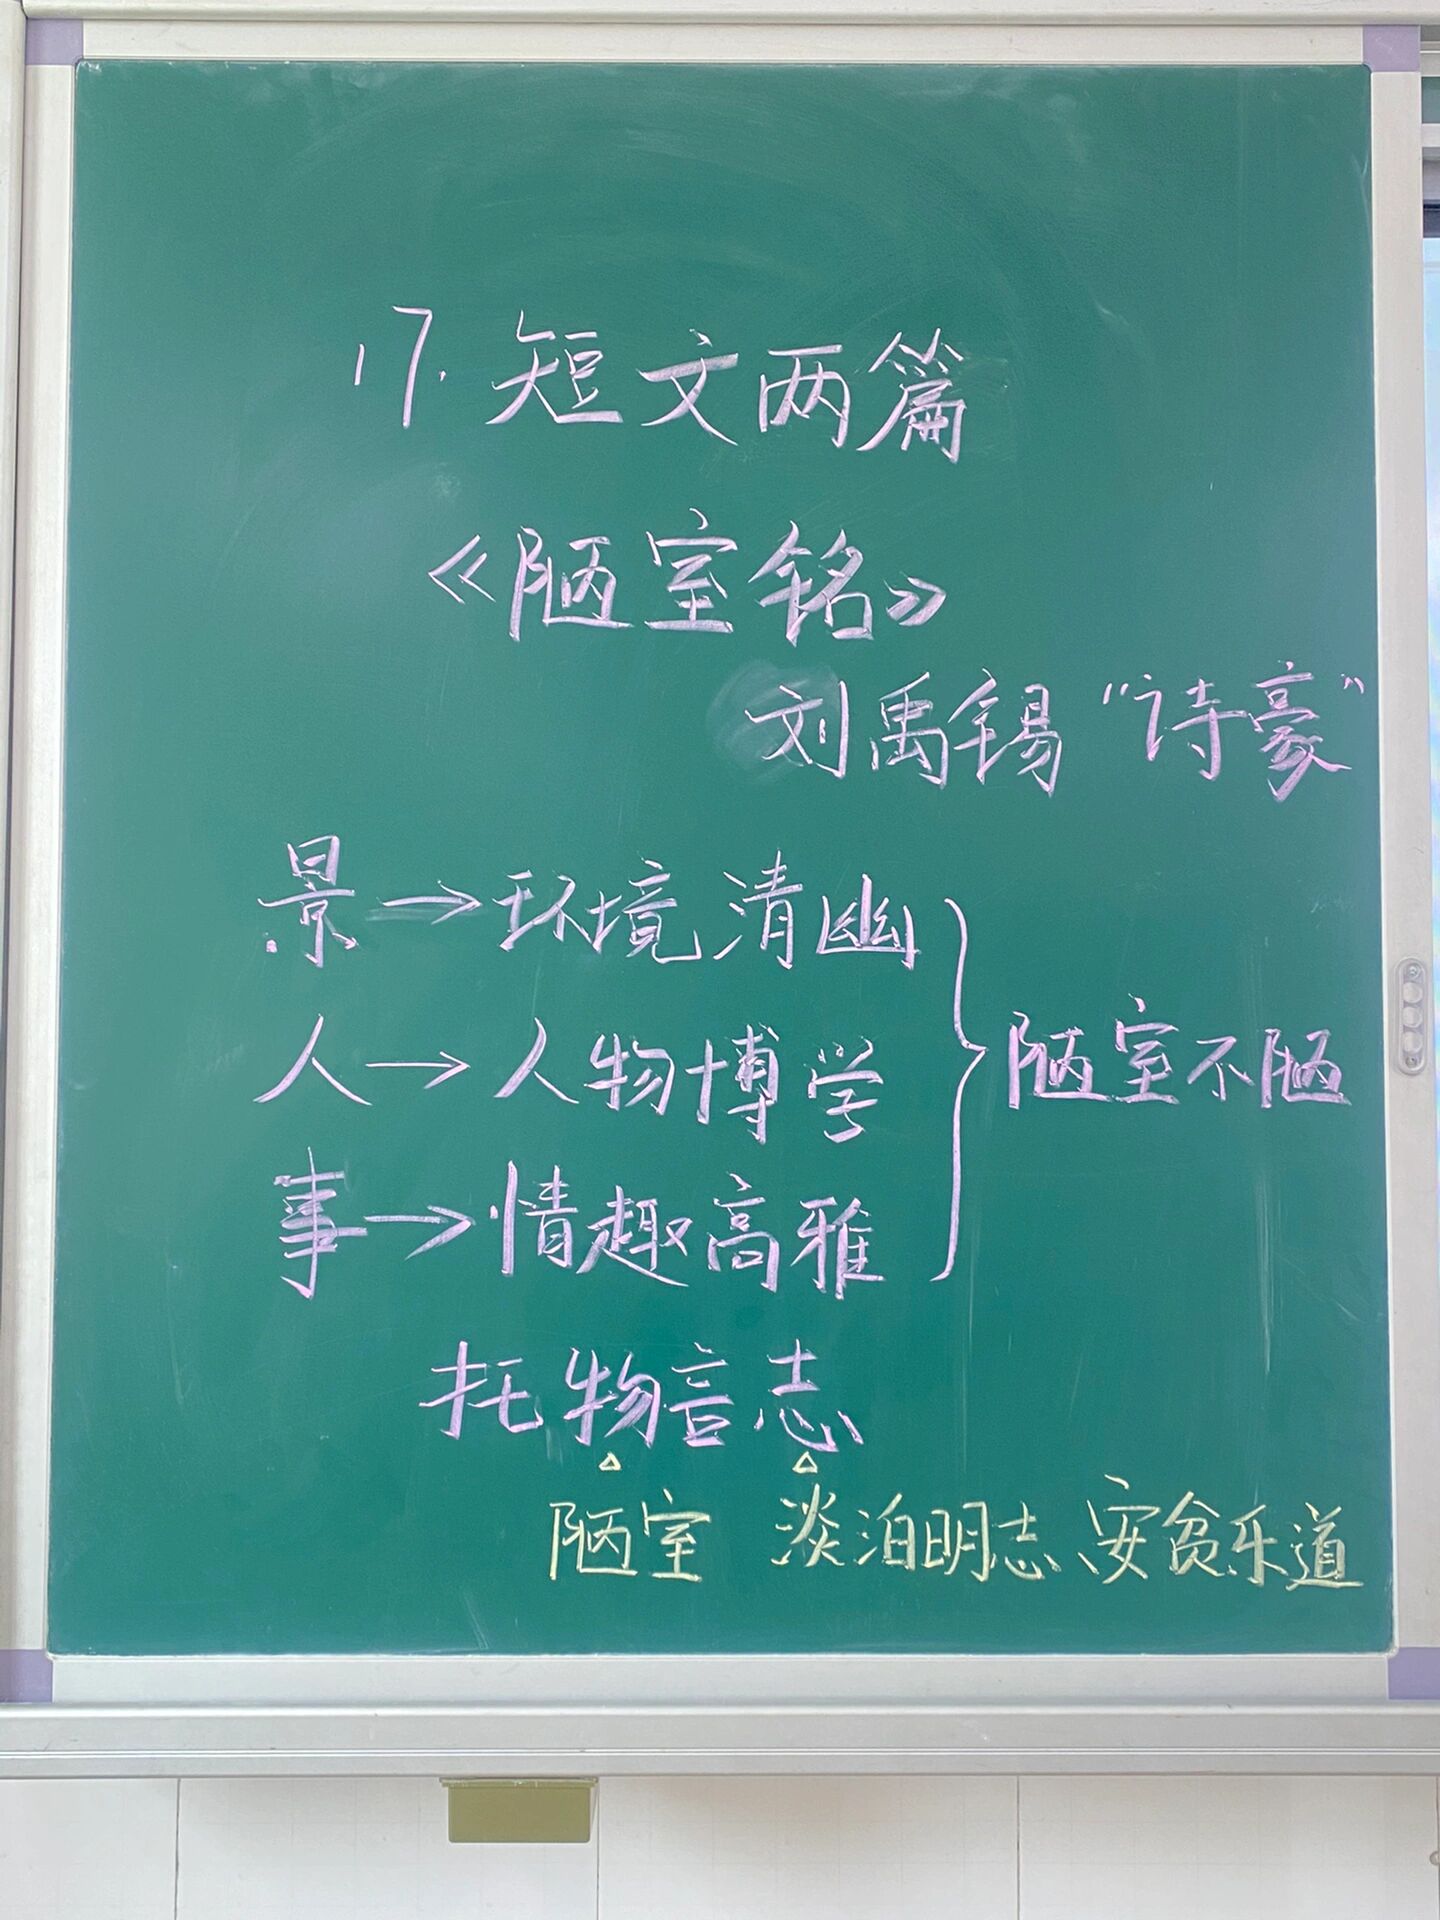 17. 短文两篇
《陋室铭》
刘禹锡 "诗豪"
景→环境清幽
人→人物博学
事→情趣高雅
陋室不陋
托物言志
陋室 淡泊明志 安贫乐道